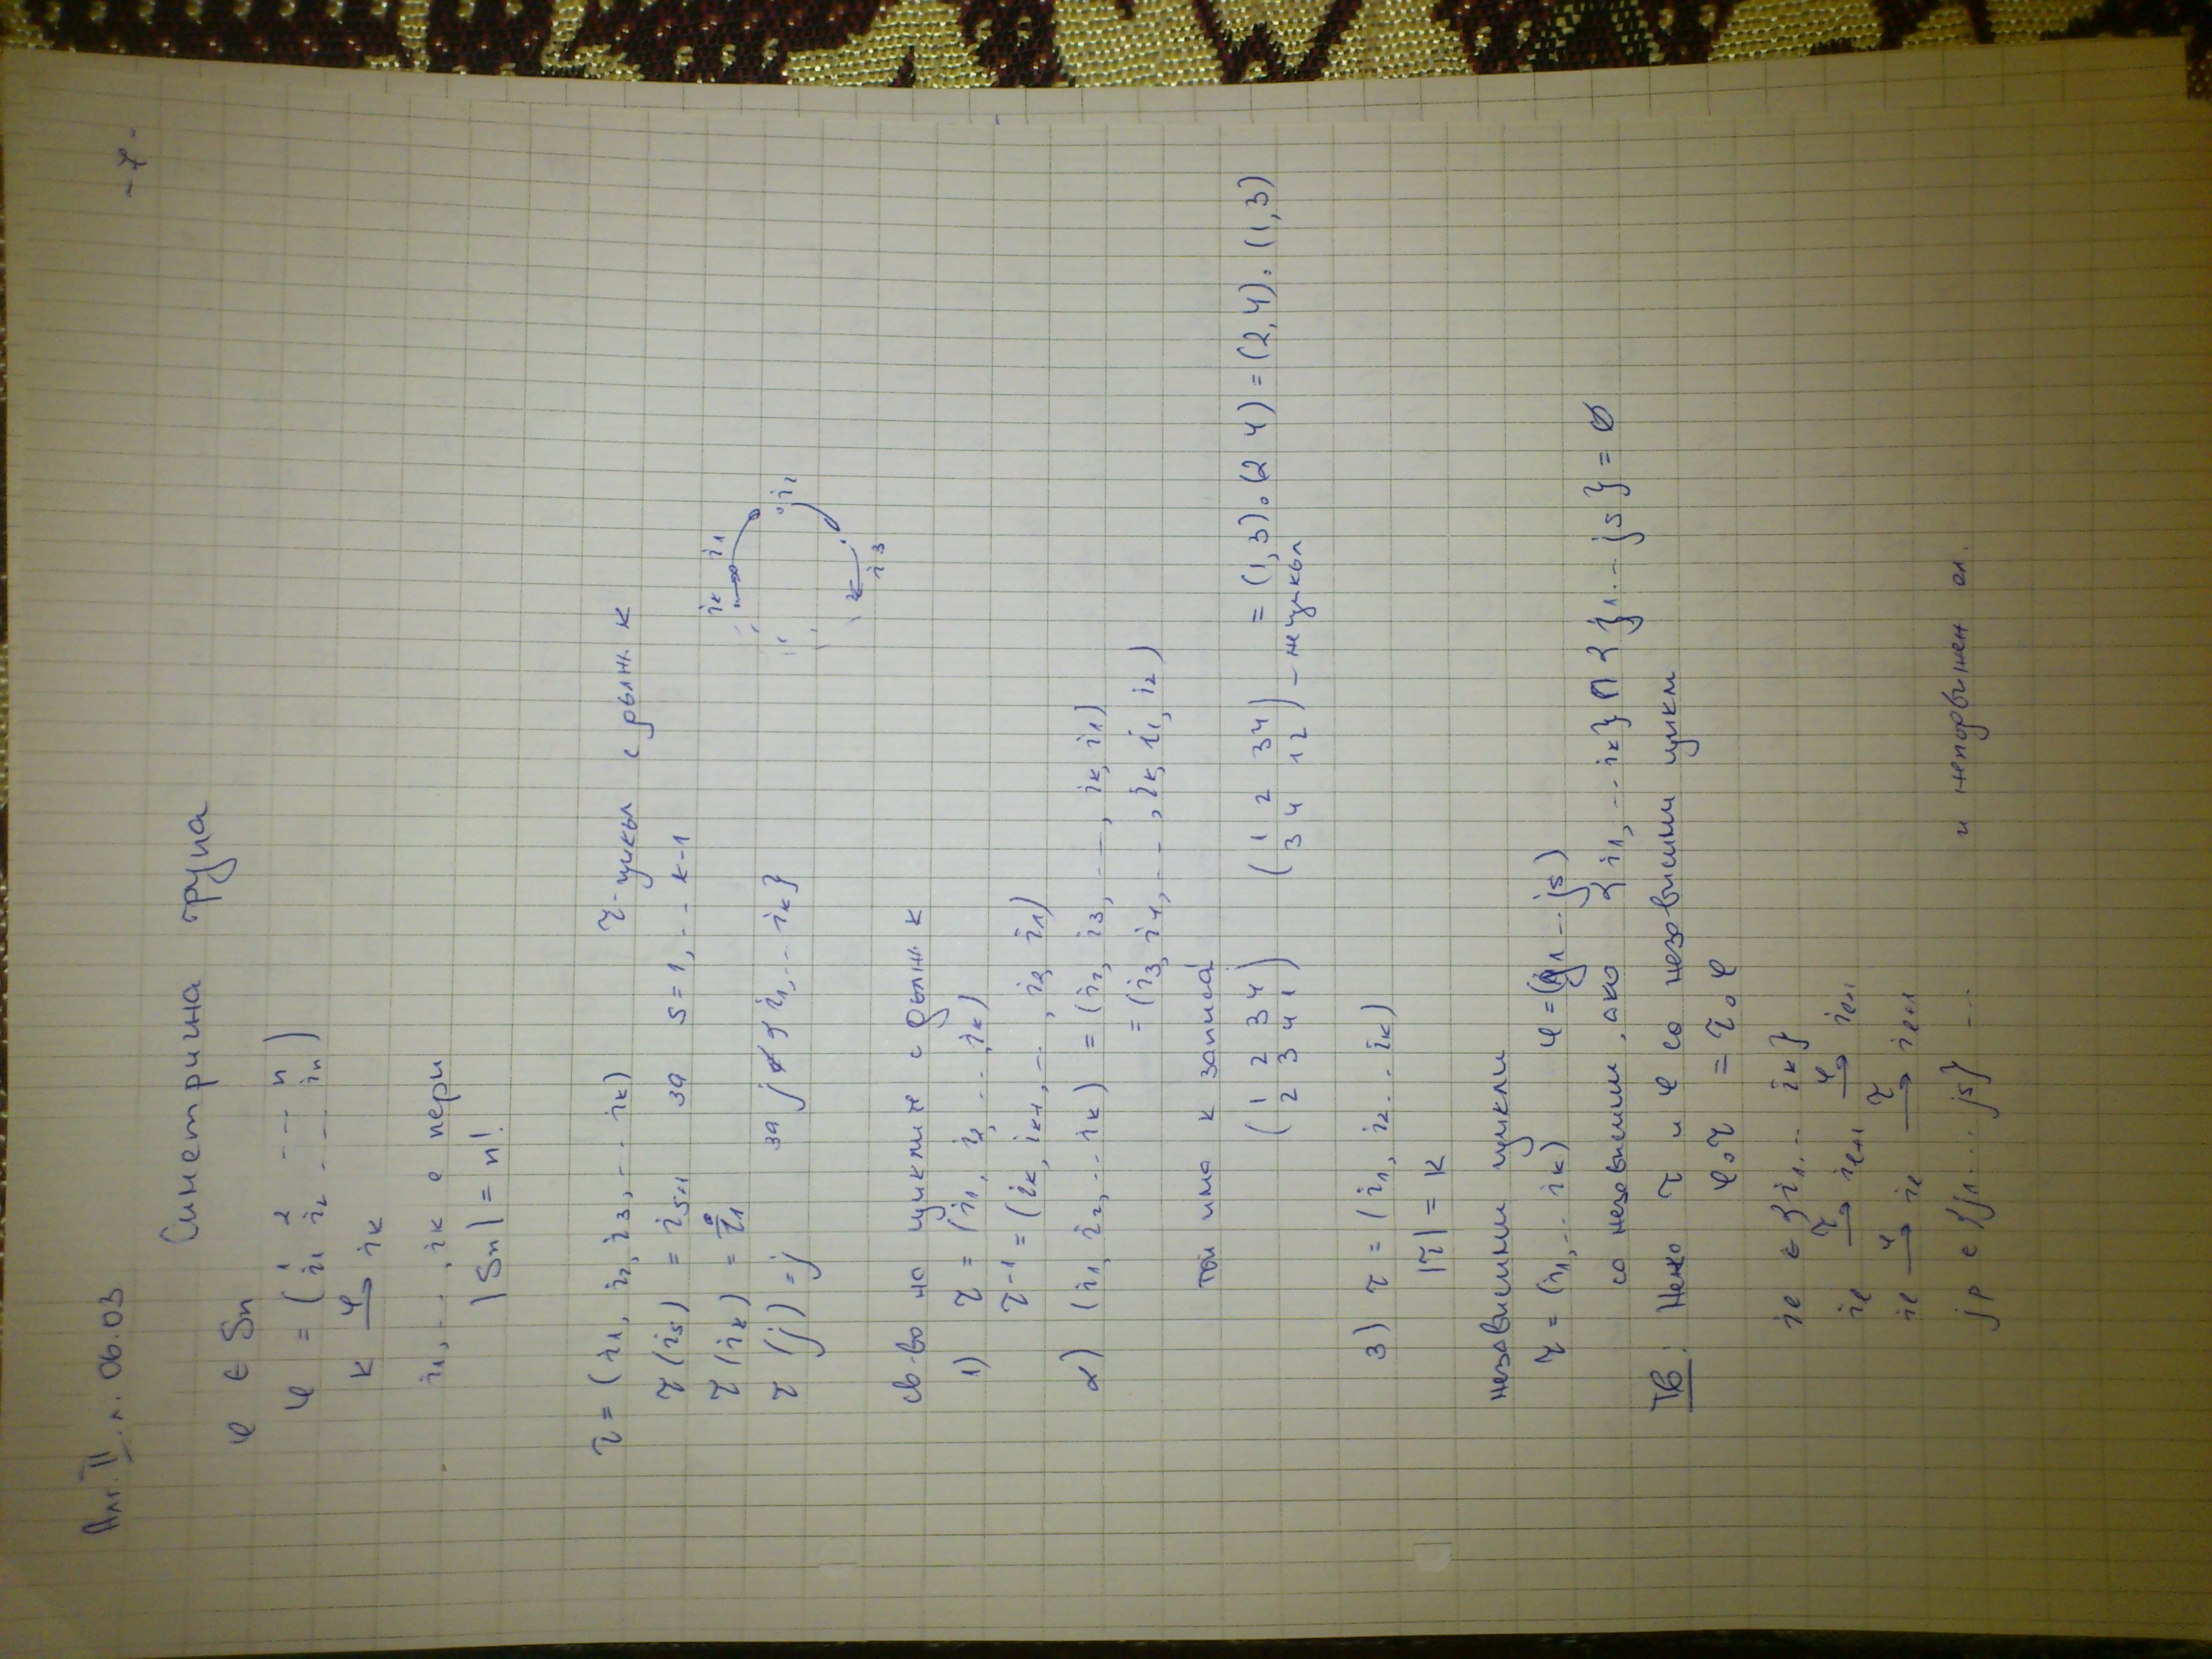 Алг. II л. 06.03
-7-
Симетрична група
φ ∈ Sn
φ = ( 1 2 --- n )
( i1 i2 --- in )
k →φ ik
i1, --- , ik е перм
|Sn| = n!
τ = (i1, i2, i3, -- ik) τ-цикъл с дълж. k
τ (is) = is+1 за s = 1, -- k-1
τ (ik) = i1
τ (j) = j за j ∉ {i1, -- ik}
ik i1 i2 i3
св-во на циклите с дълж k
1) τ = (i1, i2, -- , ik)
τ-1 = (ik, ik-1, -- , i2, i1)
2) (i1, i2, -- ik) = (i2, i3, -- , ik, i1)
= (i3, i4, -- , ik, i1, i2)
той има k записа
( 1 2 3 4 ) ( 1 2 3 4 ) = (1,3)∘(2 4) = (2,4)∘(1,3)
( 2 3 4 1 ) ( 3 4 1 2 ) - не цикъл
3) τ = (i1, i2 .. ik)
|τ| = k
независими цикли
τ = (i1, .. ik) φ = (j1 .. js)
са независими, ако {i1, -- ik} ∩ {j1 .. js} = ∅
Тв: Нека τ и φ са независими цикли
φ∘τ = τ∘φ
ie ∈ {i1, .. ik}
ie →τ ie+1 →φ ie+1
ie →φ ie →τ ie+1
jp ∈ {j1 ... js} ---
и неподвижен ел.